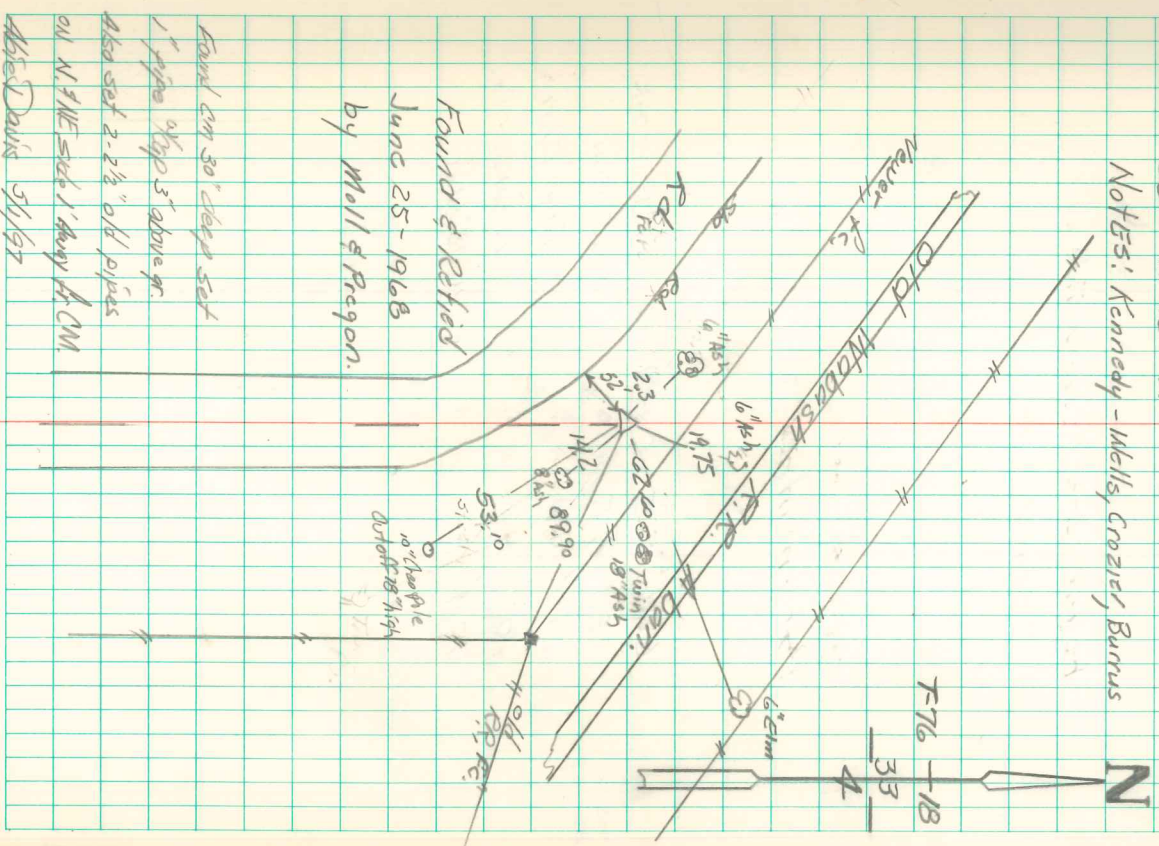 NOTES: Kennedy-Wells, Crozier, Burrus
N
T-76-18
33
4
Newer Fc.
Old Wabash R.R.
Aban.
6" Elm
6" Ash
6" Ash
19.75
2.3
52'
62.6
Twin
18" Ash
14.2
8" Ash
89.90
53.10
10"
Cut off 18" high
Sto
Rd
Rd
Old
R.R. Fc.
Found & Retied
June 25-1968
by Moll & Pregon.
Found cm 30" deep set
1" pipe 3" above gr.
Also set 2-2½" old pipes
on N. & NE side 1' away fr. CM.
Davis 5/1/97